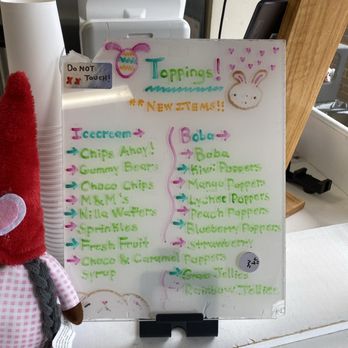 DO NOT
TOUCH!
Toppings!
**NEW ITEMS!!
Icecream →
→ Chips Ahoy!
→ Gummy Bears
→ Choco Chips
→ M&M's
→ Nilla Wafers
→ Sprinkles
→ Fresh Fruit
→ Choco & Caramel
Syrup
Boba →
→ Boba
→ Kiwi Poppers
→ Mango Poppers
→ Lychee Poppers
→ Peach Poppers
→ Blueberry Poppers
→ Strawberry
Poppers
→ Grass Jellies
→ Rainbow Jellies